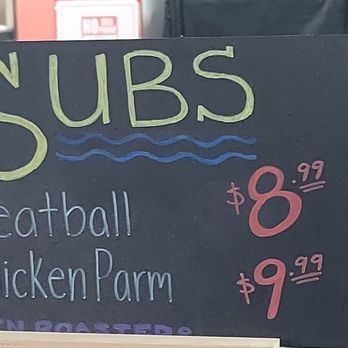 SUBS
eatball $8.99
icken Parm $9.99
EN ROASTERS